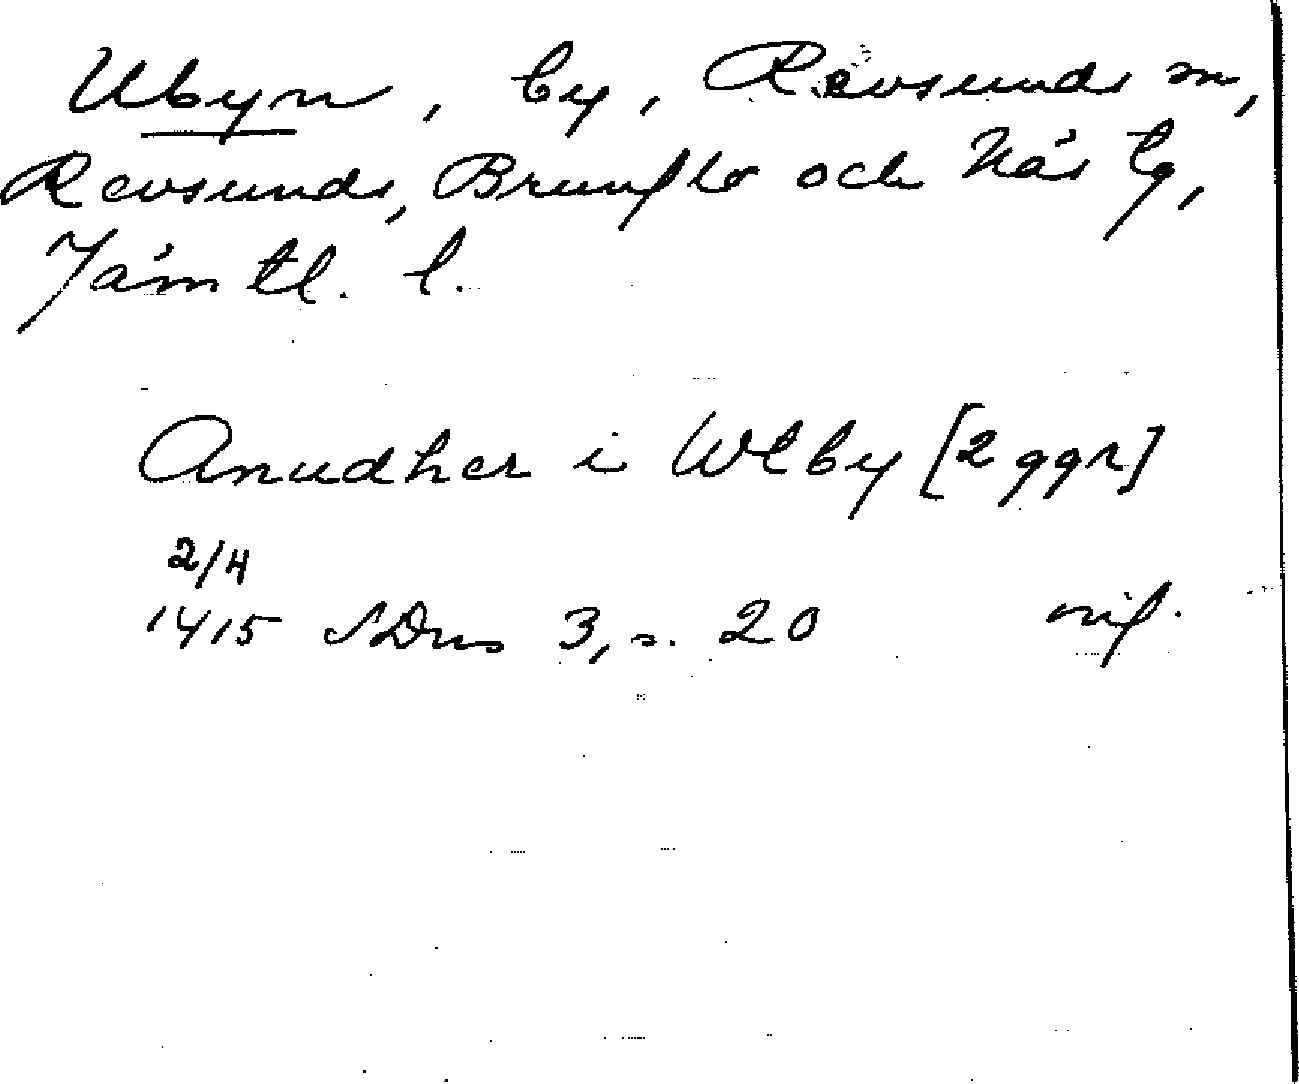 Ubyn, by, Revsunds sn,
Revsunds, Brunflo och Näs tg,
Jämtl. l.
Anudher i Wlby [2 ggr]
2/4
1415 SDns 3, s. 20